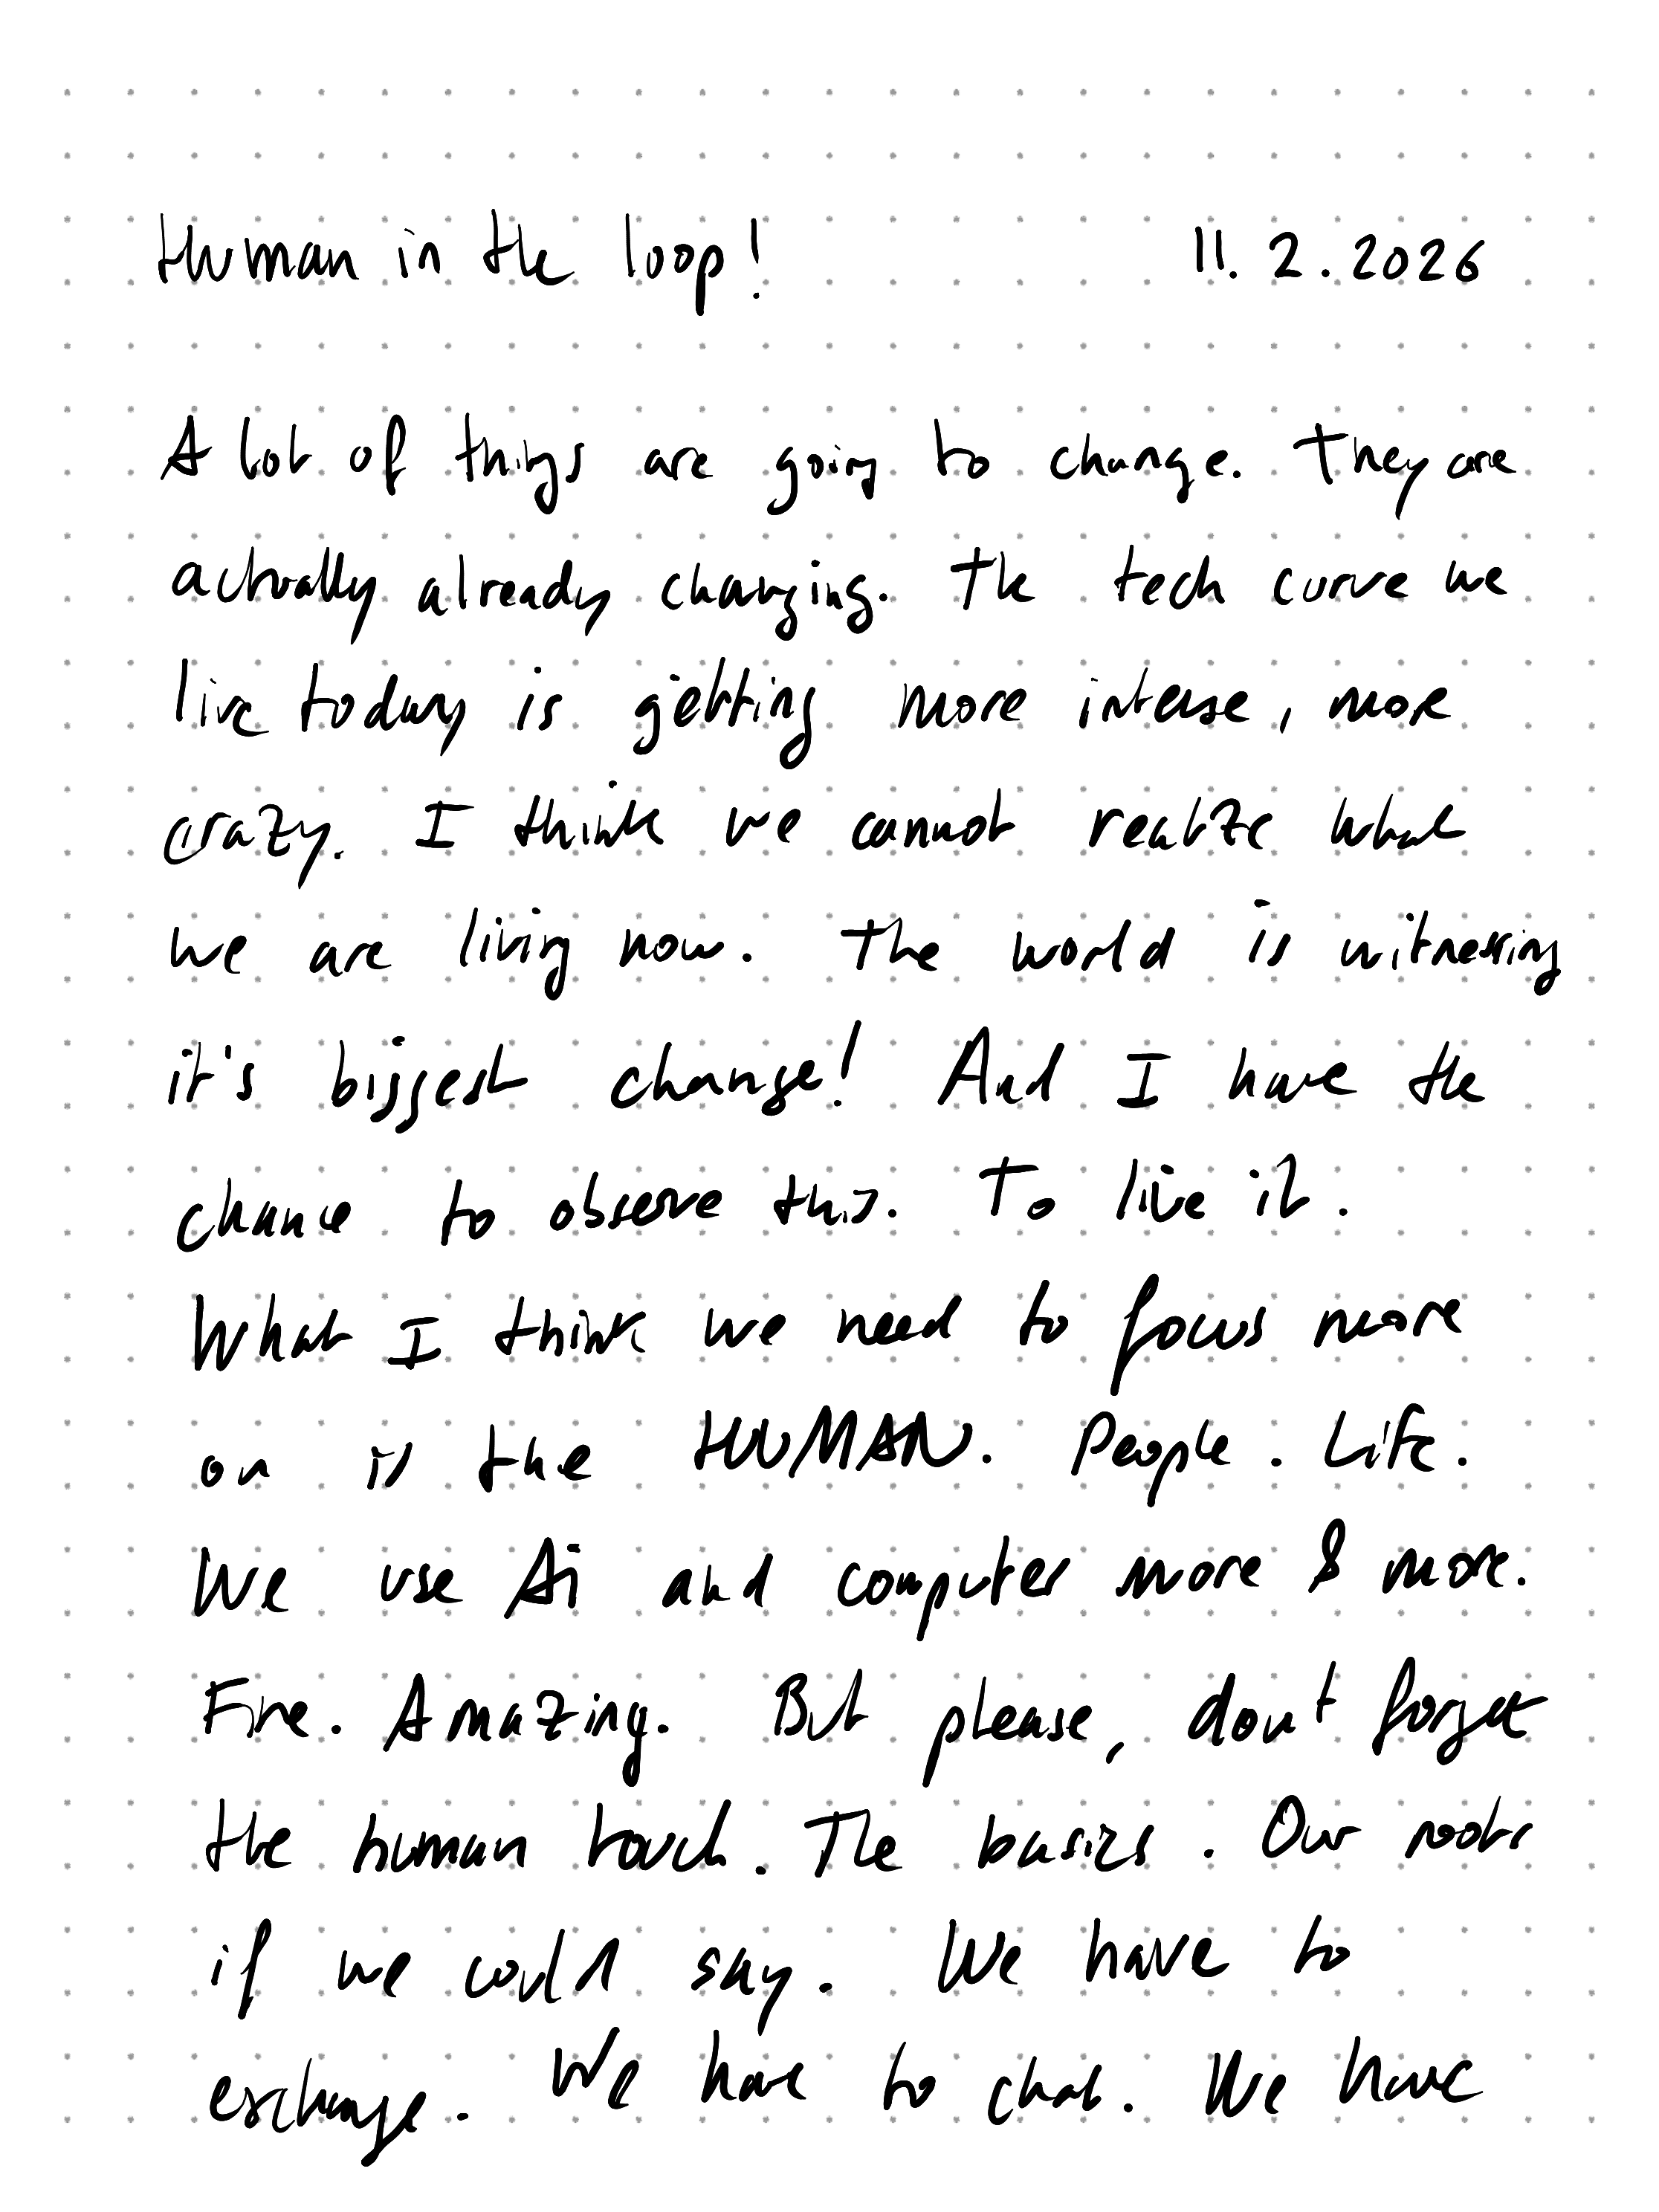 Human in the loop! 11. 2. 2026
A lot of things are going to change. They are
actually already changing. The tech curve we
live today is getting more intense, more
crazy. I think we cannot realize what
we are living now. The world is witnessing
it's biggest change! And I have the
chance to observe this. To live it.
What I think we need to focus more
on is the HUMAN. People. Life.
We use Ai and computer more & more.
Fine. Amazing. But please, don't forget
the human touch. The basics. Our roots
if we could say. We have to
exchange. We have to chat. We have